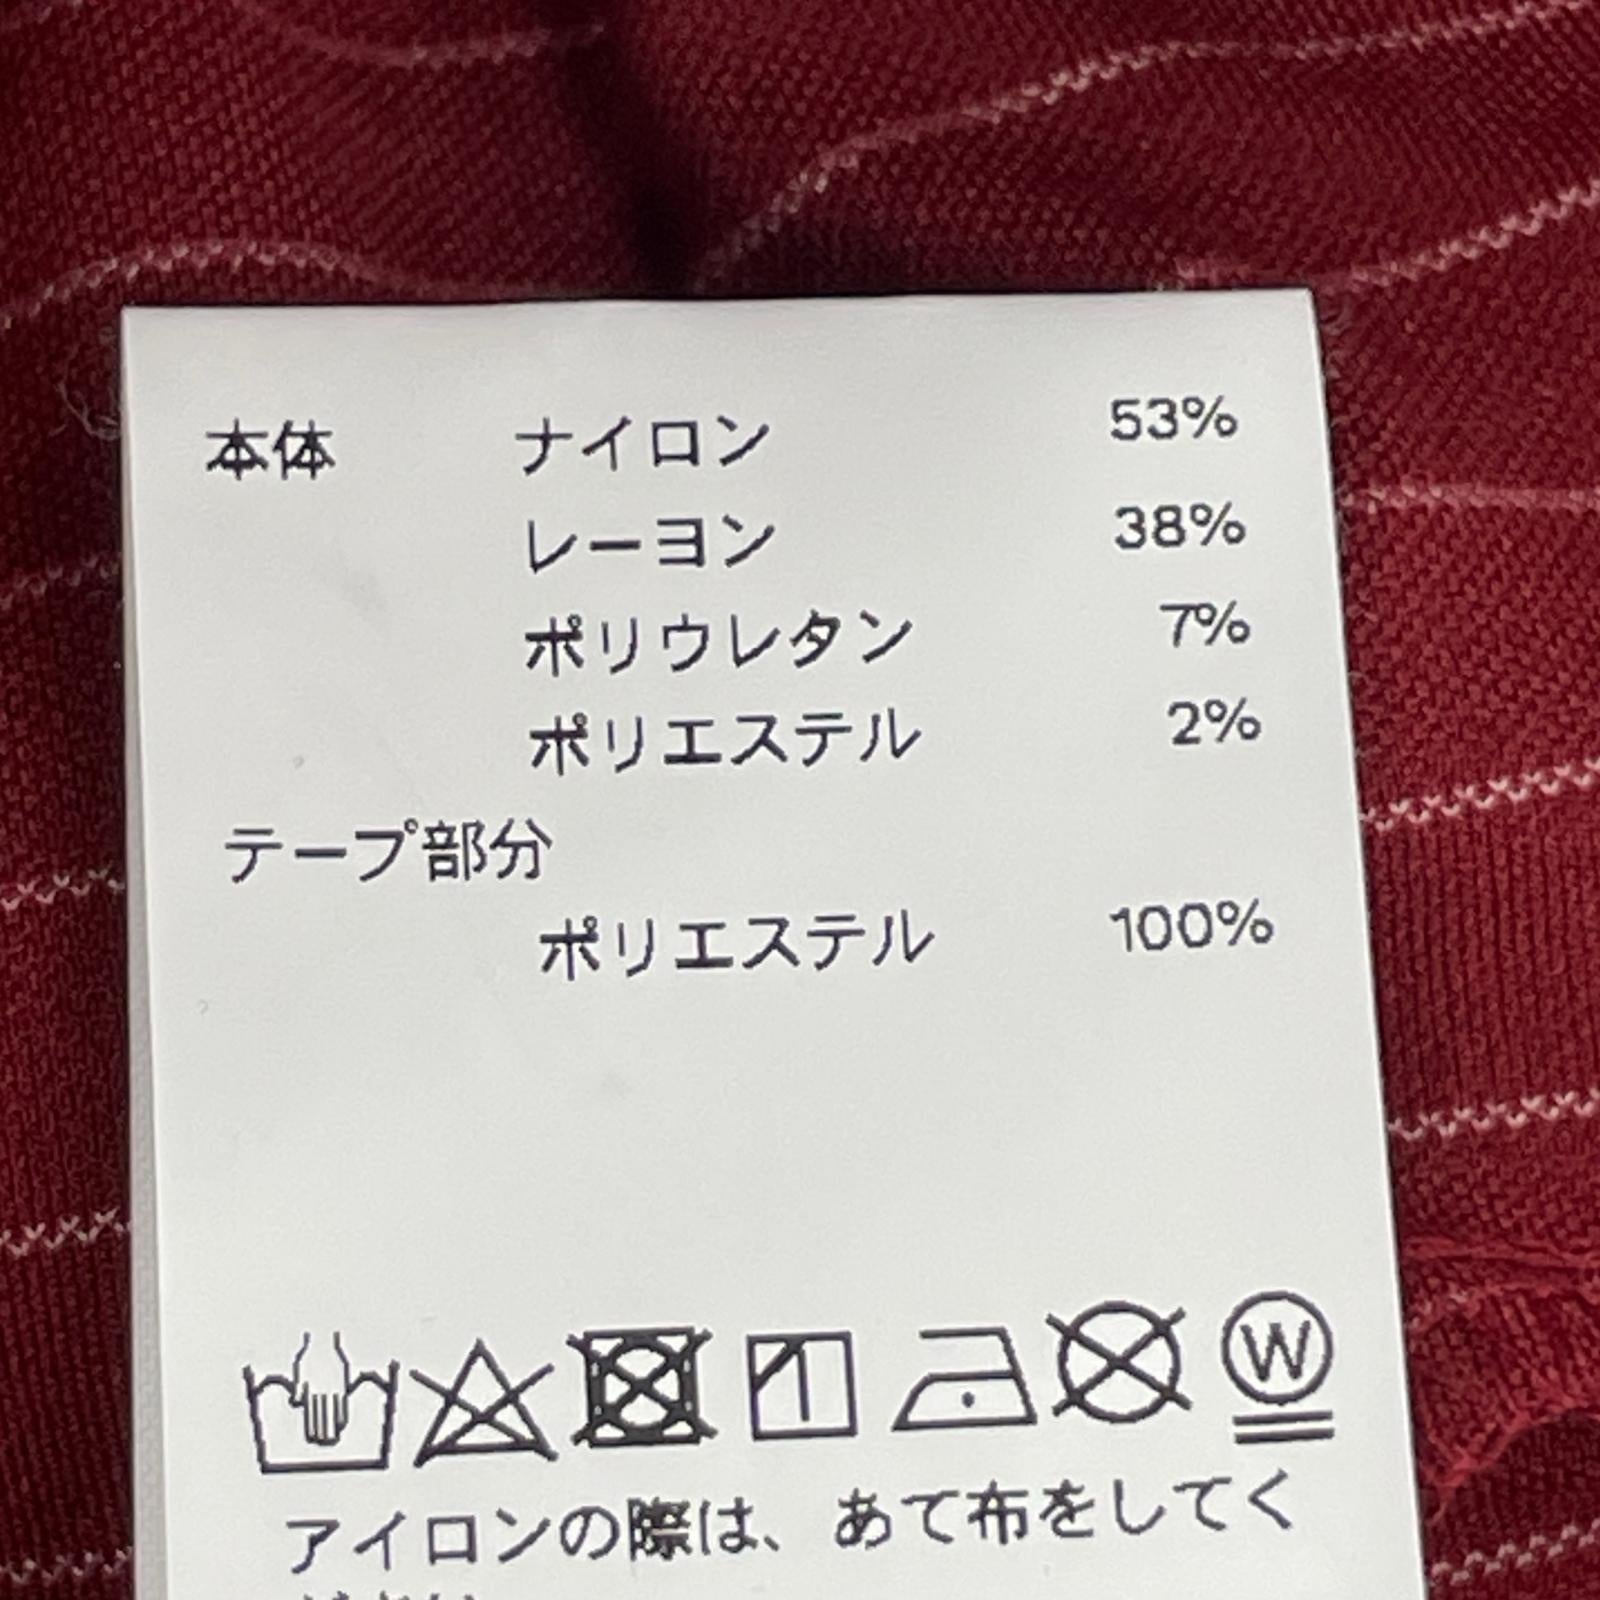 本体 ナイロン 53%
レーヨン 38%
ポリウレタン 7%
ポリエステル 2%
テープ部分
ポリエステル 100%
W
アイロンの際は、あて布をしてく